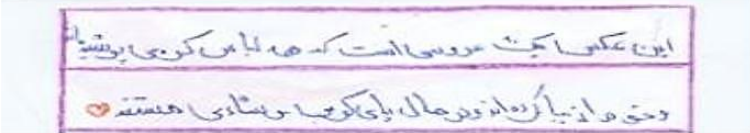 این عکس یک عروسی است که همه لباس کردی پوشیده‌اند
و خود را زیبا کرده‌اند و در حال پای کوبی و شادی هستند